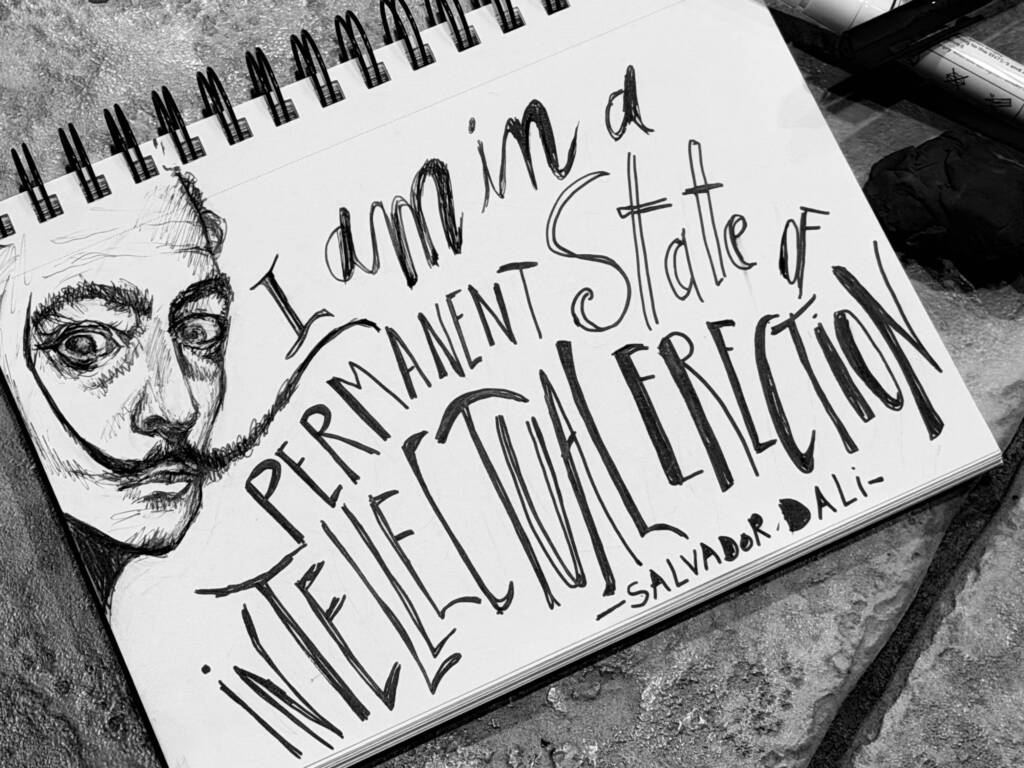 I am in a
PERMANENT State of
iNTELLECTUAL ERECTiON
-SALVADOR DALi-